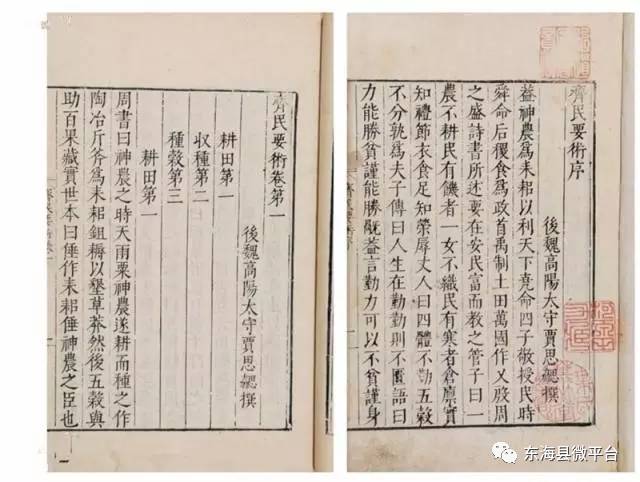 齊民要術序
後魏高陽太守賈思勰撰
葢神農爲耒耜以利天下堯命四子敬授民時
舜命后稷食爲政首禹制土田萬國作乂殷周
之盛詩書所述要在安民富而教之管子曰一
農不耕民有饑者一女不織民有寒者倉廪實
知禮節衣食足知榮辱丈人曰四體不勤五穀
不分孰爲夫子傳曰人生在勤勤則不匱語曰
力能勝貧謹能勝旤葢言勤力可以不貧謹身
齊民要術卷第一
後魏高陽太守賈思勰撰
耕田第一
收種第二
種穀第三
耕田第一
周書曰神農之時天雨粟神農遂耕而種之作
陶冶斤斧爲耒耜鉏耨以墾草莽然後五穀與
助百果藏實世本曰倕作耒耜倕神農之臣也
东海县微平台